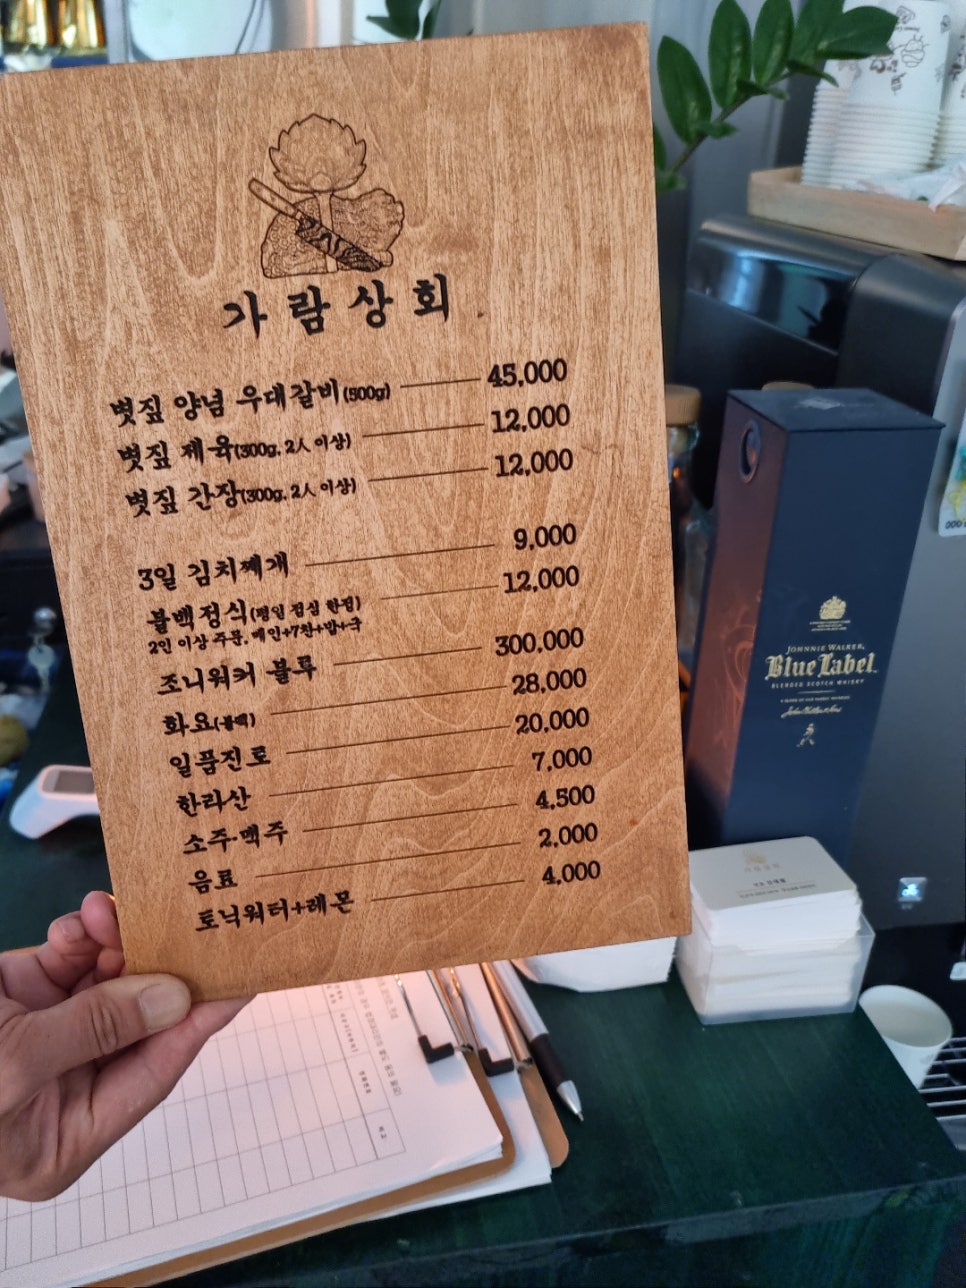 가람상회
볏짚 양념 우대갈비(500g) 45,000
볏짚 제육(300g, 2人 이상) 12,000
볏짚 간장(300g, 2人 이상) 12,000
3일 김치찌개 9,000
불백정식(평일 점심 한정) 12,000
2인 이상 주문, 메인+7찬+밥+국
조니워커 블루 300,000
화요(블랙) 28,000
일품진로 20,000
한라산 7,000
소주·맥주 4,500
음료 2,000
토닉워터+레몬 4,000
JOHNNIE WALKER
Blue Label
BLENDED SCOTCH WHISKY
John Walker & Sons
가람상회
000